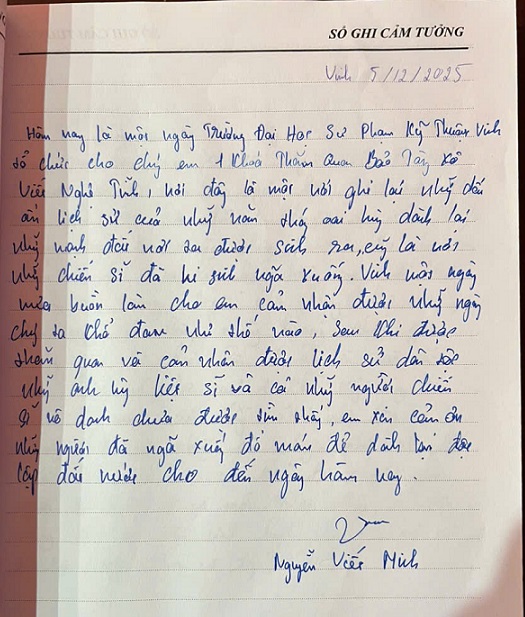 SỔ GHI CẢM TƯỞNG
Vinh 5/12/2025
Hôm nay là một ngày Trường Đại Học Sư Phạm Kỹ Thuật Vinh
tổ chức cho chúng em 1 Khoá Thăm Quan Bảo Tàng Xô
Viết Nghệ Tĩnh, nơi đây là một nơi ghi lại những dấu
ấn lịch sử của những năm tháng oai hùng dành lại
những mảnh đất nơi ta được sinh ra, cũng là nơi
những chiến sĩ đã hi sinh ngã xuống. Vinh một ngày
mưa buồn làm cho em cảm nhận được những ngày
chúng ta khổ đau như thế nào, sau khi được
thăm quan và cảm nhận được lịch sử dân tộc
những anh hùng liệt sĩ và cả những người chiến
sĩ vô danh chưa được tìm thấy, em xin cảm ơn
những người đã ngã xuống đổ máu để dành lại độc
lập đất nước cho đến ngày hôm nay.
Nguyễn Viết Minh